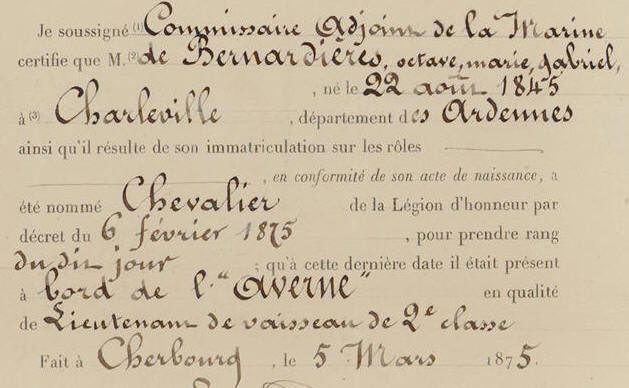 Je soussigné (1) Commissaire Adjoint de la Marine
certifie que M. (2) de Bernardières, octave, marie, gabriel,
, né le 22 août 1845
à (3) Charleville , département des Ardennes
ainsi qu'il résulte de son immatriculation sur les rôles
, en conformité de son acte de naissance, a
été nommé Chevalier de la Légion d'honneur par
décret du 6 février 1875 , pour prendre rang
du dit jour ; qu'à cette dernière date il était présent
à bord de l'"Averne" en qualité
de Lieutenant de vaisseau de 2e classe
Fait à Cherbourg , le 5 Mars 1875.